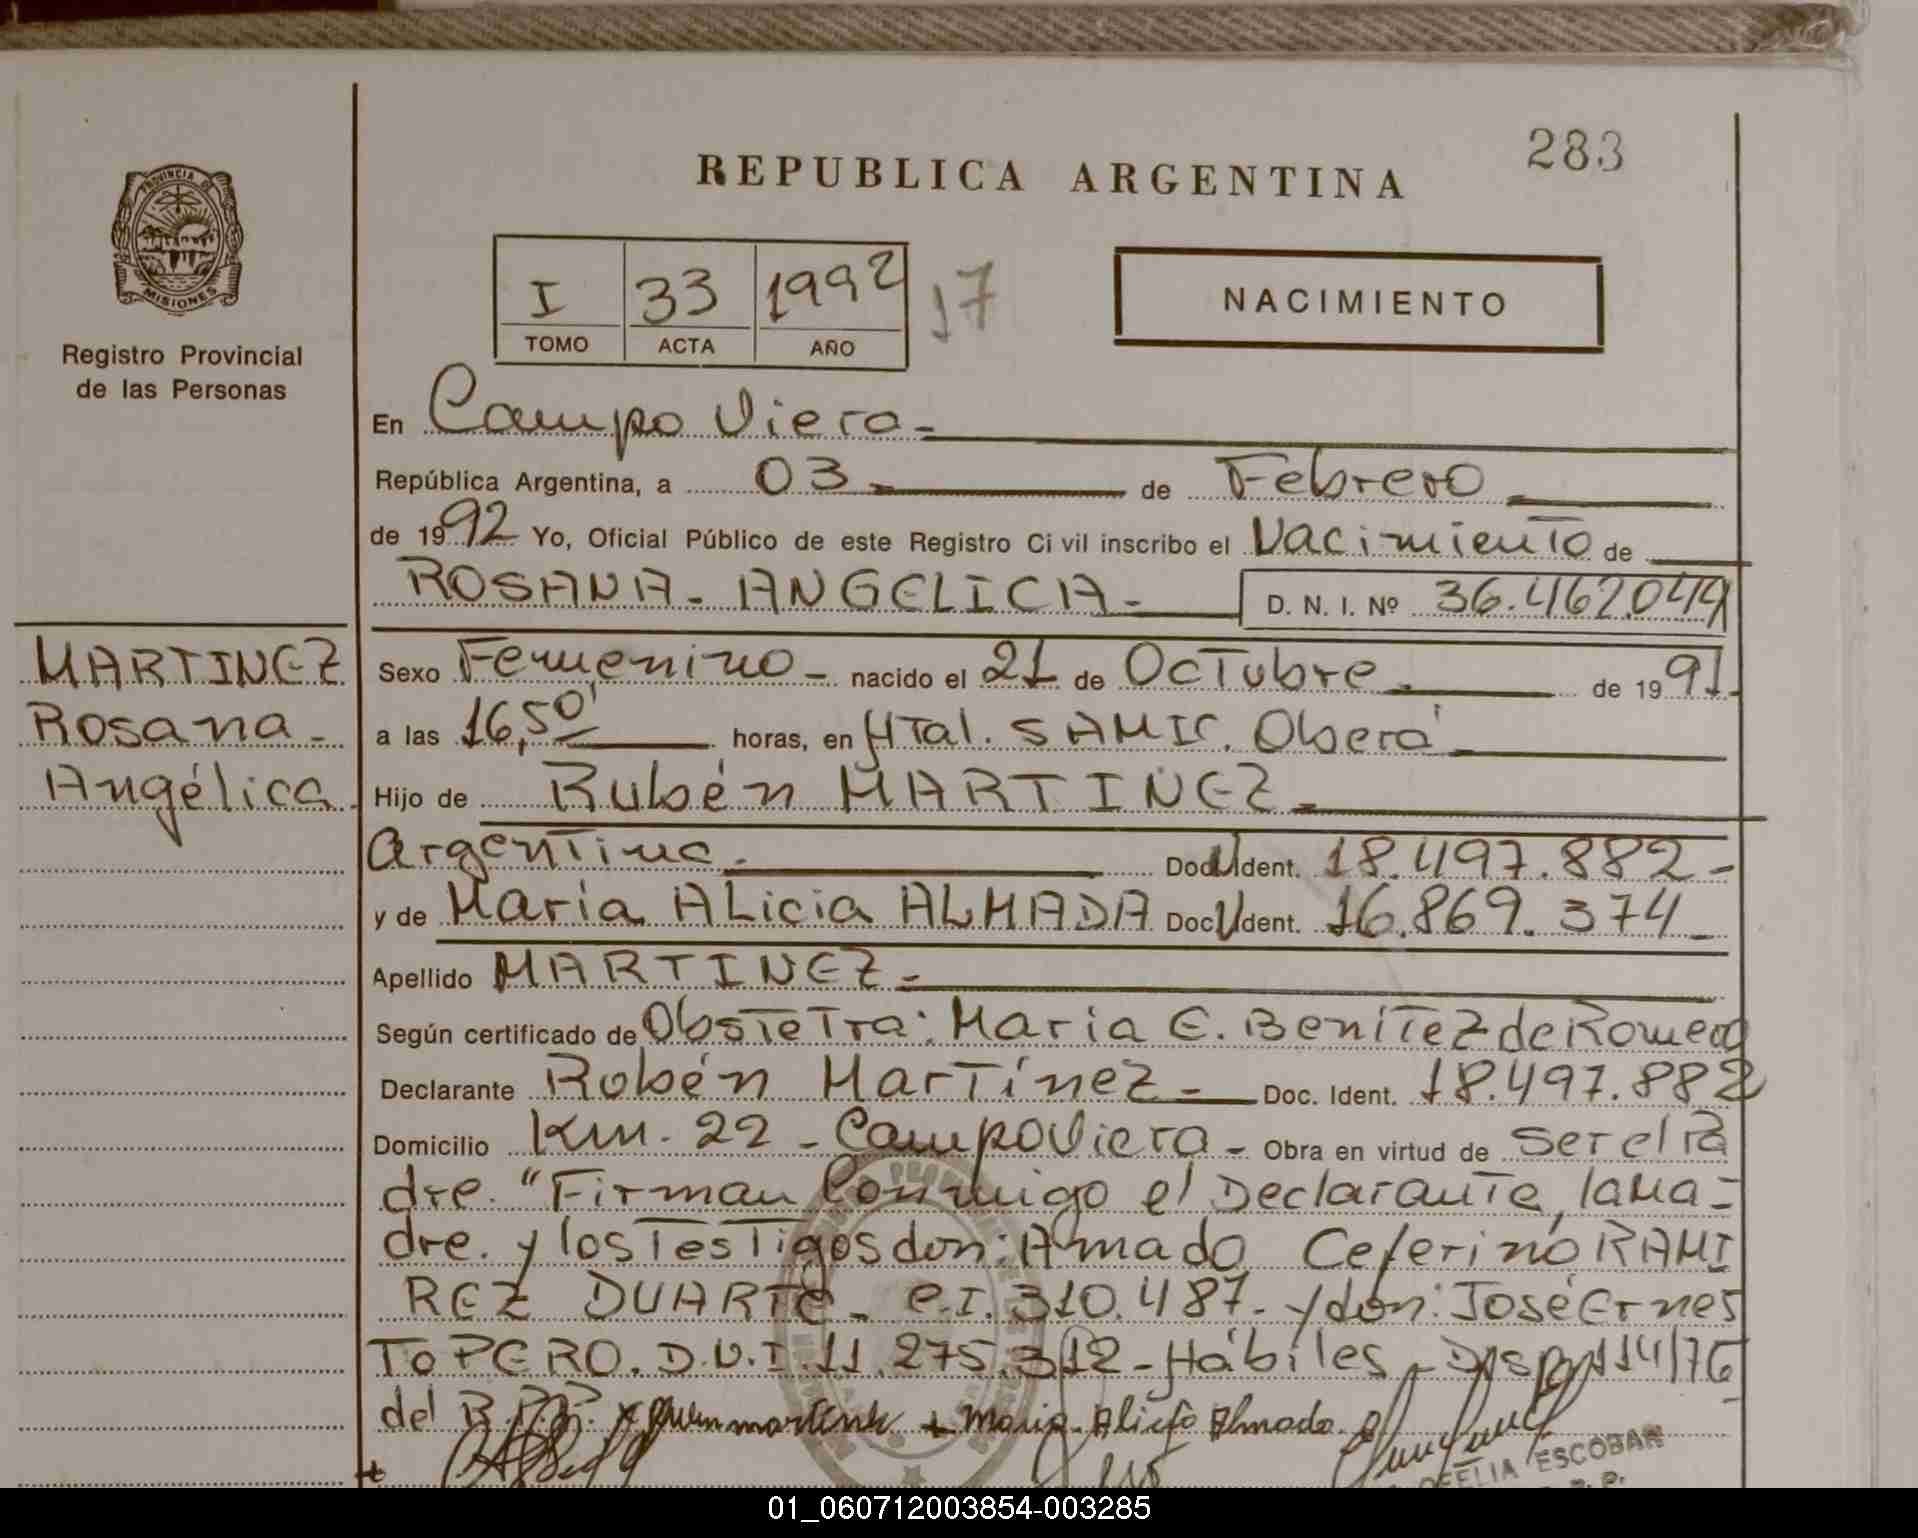 283
REPUBLICA ARGENTINA
PROVINCIA DE
MISIONES
Registro Provincial
de las Personas
I 33 1992 17
TOMO ACTA AÑO
NACIMIENTO
En Campo Viera-
República Argentina, a 03- de Febrero
de 1992 Yo, Oficial Público de este Registro Civil inscribo el Nacimiento de
ROSANA- ANGELICA- D. N. I. Nº 36.462.044
MARTINEZ
Rosana-
Angélica.
Sexo Femenino- nacido el 21 de Octubre- de 1991-
a las 16,50' horas, en Htal. SAMIC. Oberá-
Hijo de Rubén MARTINEZ-
Argentino- Doc. Ident. 18.497.882-
y de María ALicia ALMADA Doc. Ident. 16.869.374-
Apellido MARTINEZ-
Según certificado de Obstetra: Maria E. Benítez de Romero
Declarante Rubén Martínez- Doc. Ident. 18.497.882
Domicilio Km. 22 - Campo Viera- Obra en virtud de ser el Pa
dre. "Firman Conmigo el Declarante, la Ma=
dre. y los Testigos don: Amado Ceferino RAMI
REZ DUARTE- C.I. 310.487- y don: José Ernes
To PERO. D.N.I. 11.275.312- Hábiles - Disp. 114/76
del R.P.P.
Maria Alicia Almada
OFELIA ESCOBAR
01_060712003854-003285